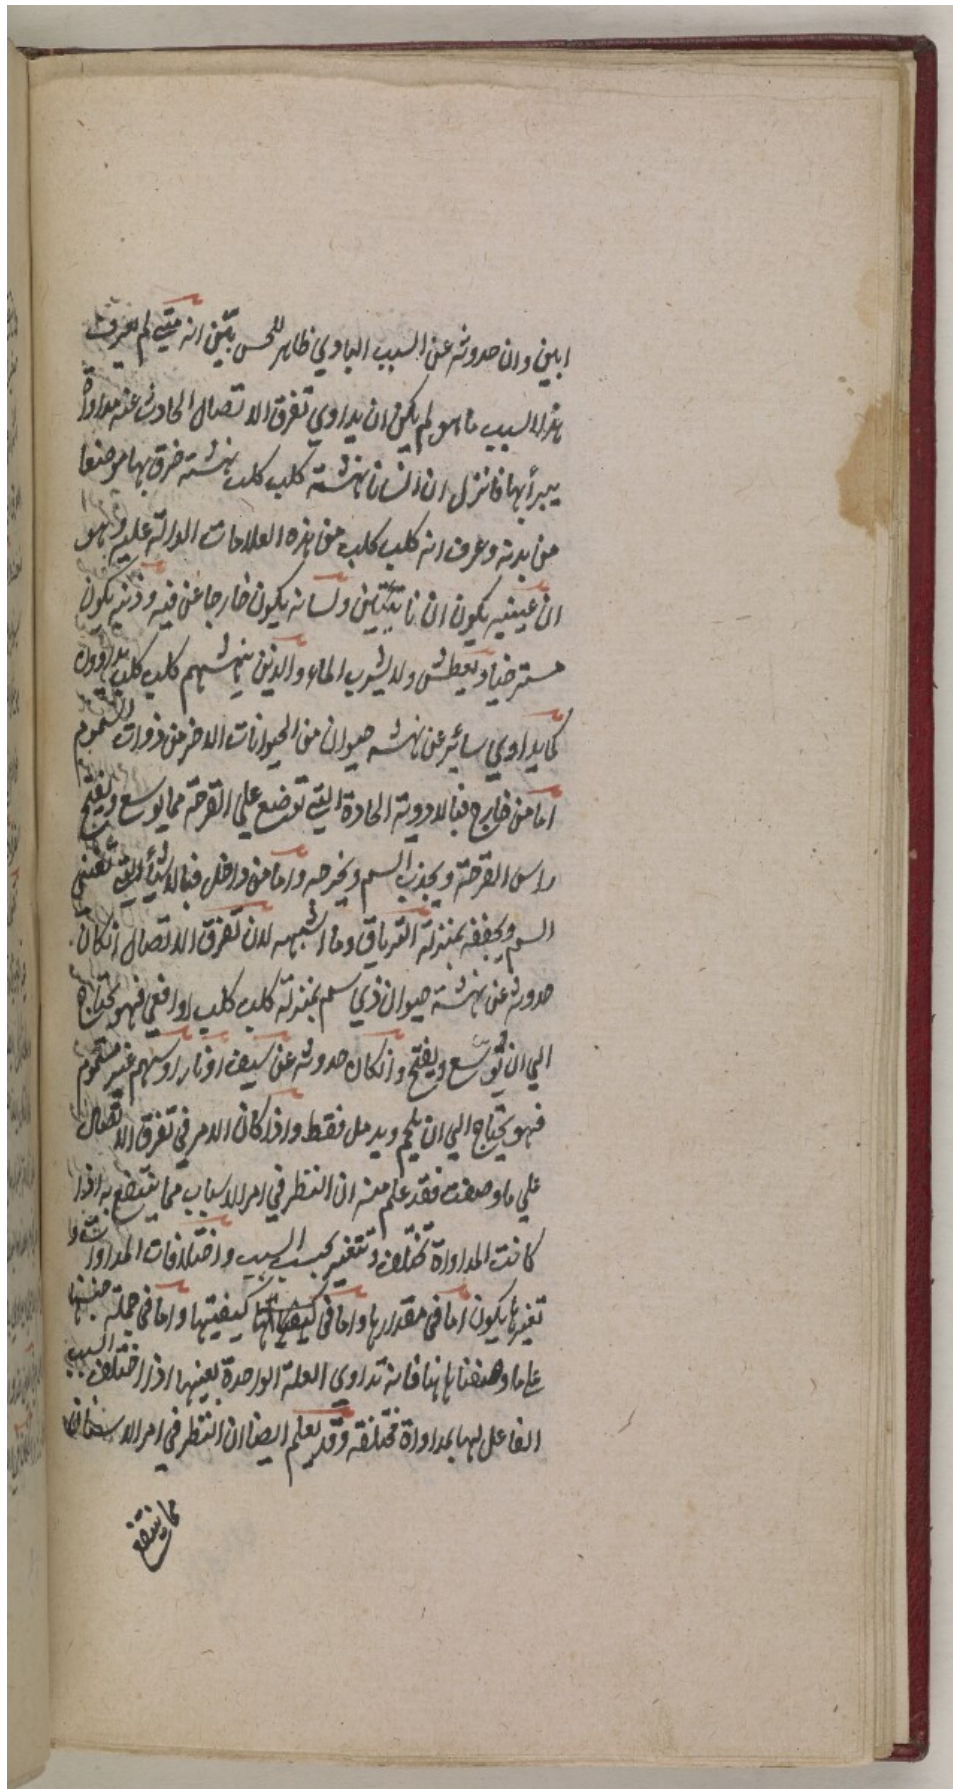 ابين وان حدوثه عن السبب البادي ظاهر للحس بيّن انه متي لم يعرف
هذا السبب ما هو لم يكن ان يداوي تفرق الاتصال الحادث عنه مداواة
يبرأ بها فانزل ان انسانا نهشه كلب كلب نهشة خرق بها موضعا
من بدنه وعرف انه كلب كلب من هذه العلامات الدالة عليه وهو
ان عينيه يكون ان ولسانه يكون خارجا عن فيه وذنبه يكون
مسترخيا ويعطش ولا يشرب الماء والذين ينهشهم كلب كلب يداوون
كما يداوي سائر عن نهشه حيوان من الحيوانات الاخر من ذوات السموم
اما من خارج فبالادوية الحادة التي توضع علي القرحة مما يوسع ويفتح
راس القرحة ويجذب السم ويخرجه واما من داخل فبالاشياء التي تفني
السم ويجففه بمنزلة الترياق وما اشبهه لان تفرق الاتصال انكان
حدوثه عن نهشة حيوان ذي سم بمنزلة كلب كلب او افعي فهو يحتاج
الي ان يوسع ويفتح وانكان حدوثه عن سيف او نار او سهم غير مسموم
فهو يحتاج الي ان يلحم ويدمل فقط واذا كان الامر في تفرق الاتصال
علي ما وصفت فقد علم منه ان النظر في امر الاسباب مما ينتفع به اذا
كانت المداواة تختلف وتتغير بحسب السبب واختلافات المداوات و
تغيرها يكون اما في مقدارها واما في كيفيتها واما في جملة جنسها
علي ما وصفنا هاهنا فانه تداوي العلة الواحدة بعينها اذا اختلف السبب
الفاعل لها بمداواة مختلفة وقد يعلم ايضا ان النظر في امر الاسنان
مما ينتفع